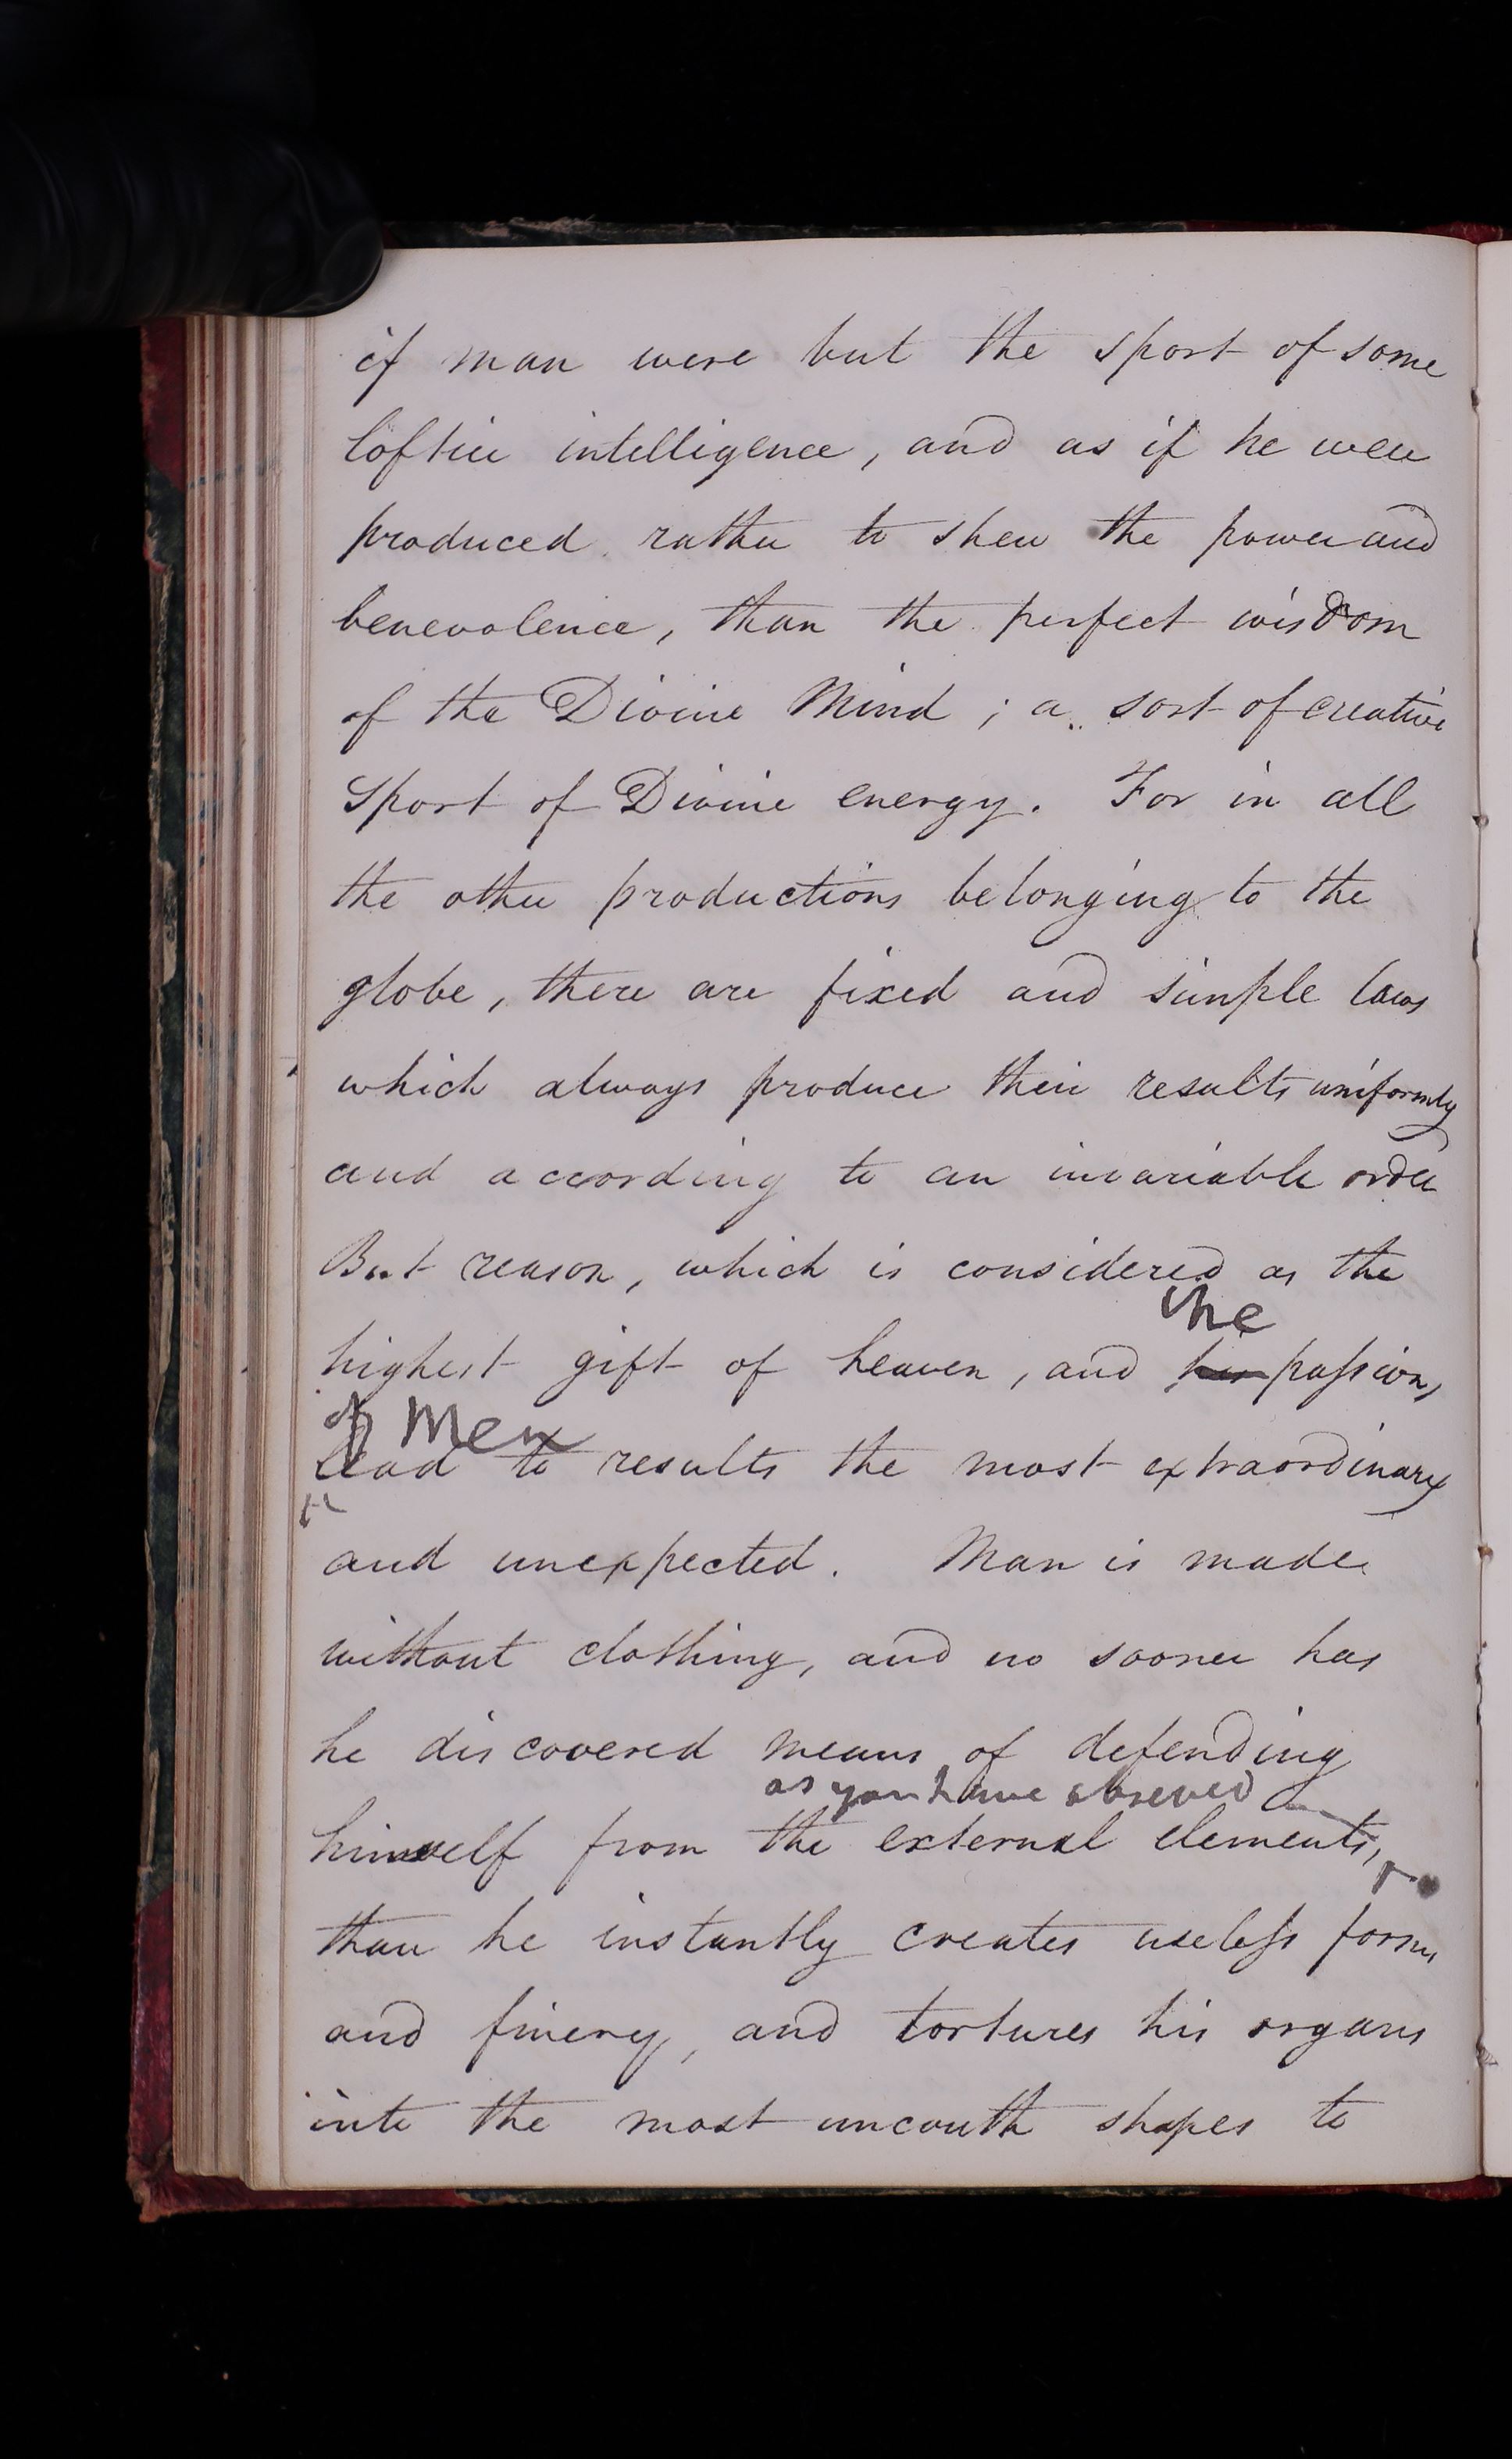 if man were but the sport of some
loftier intelligence, and as if he were
produced rather to shew the power and
benevolence, than the perfect wisdom
of the Divine Mind; a sort of creative
sport of Divine energy. For in all
the other productions belonging to the
globe, there are fixed and simple laws
which always produce their results uniformly
and according to an invariable order
But reason, which is considered as the
the
highest gift of heaven, and his passions,
of Men
lead to results the most extraordinary
and unexpected. Man is made
without clothing, and no sooner has
he discovered means of defending
as you have observed
himself from the external elements,
than he instantly creates useless forms
and finery, and tortures his organs
into the most uncouth shapes to